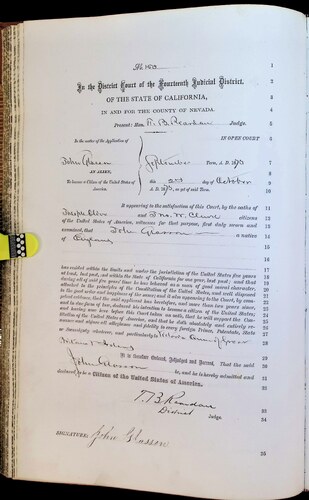 In the District Court of the Fourteenth Judicial District,
OF THE STATE OF CALIFORNIA,
IN AND FOR THE COUNTY OF NEVADA.
Present: Hon. T. B. Reardan Judge.
In the matter of the Application of IN OPEN COURT
John Glasson Term, A. D. 1873
AN ALIEN,
To become a Citizen of the United States of America. this day of October
A. D. 1873, as yet of said Term.
It appearing to the satisfaction of this Court, by the oaths of
and citizens
of the United States of America, witnesses for that purpose, first duly sworn and
examined, that John Glasson a native
of England
has resided within the limits and under the jurisdiction of the United States five years
at least, last past, and within the State of California for one year, last past; and that
during all of said five years' time he has behaved as a man of good moral character,
attached to the principles of the Constitution of the United States, and well disposed
to the good order and happiness of the same; and it also appearing to the Court, by competent
evidence, that the said applicant has heretofore, and more than two years since,
and in due form of law, declared his intention to become a citizen of the United States,
and having now here before this Court taken an oath, that he will support the Constitution
of the United States of America, and that he doth absolutely and entirely renounce
and abjure all allegiance and fidelity to every foreign Prince, Potentate, State
or Sovereignty whatever, and particularly to
It is therefore Ordered, Adjudged and Decreed, That the said
John Glasson to, and he is hereby admitted and
declared to be a Citizen of the United States of America.
T. B. Reardan
District Judge.
SIGNATURE: John Glasson